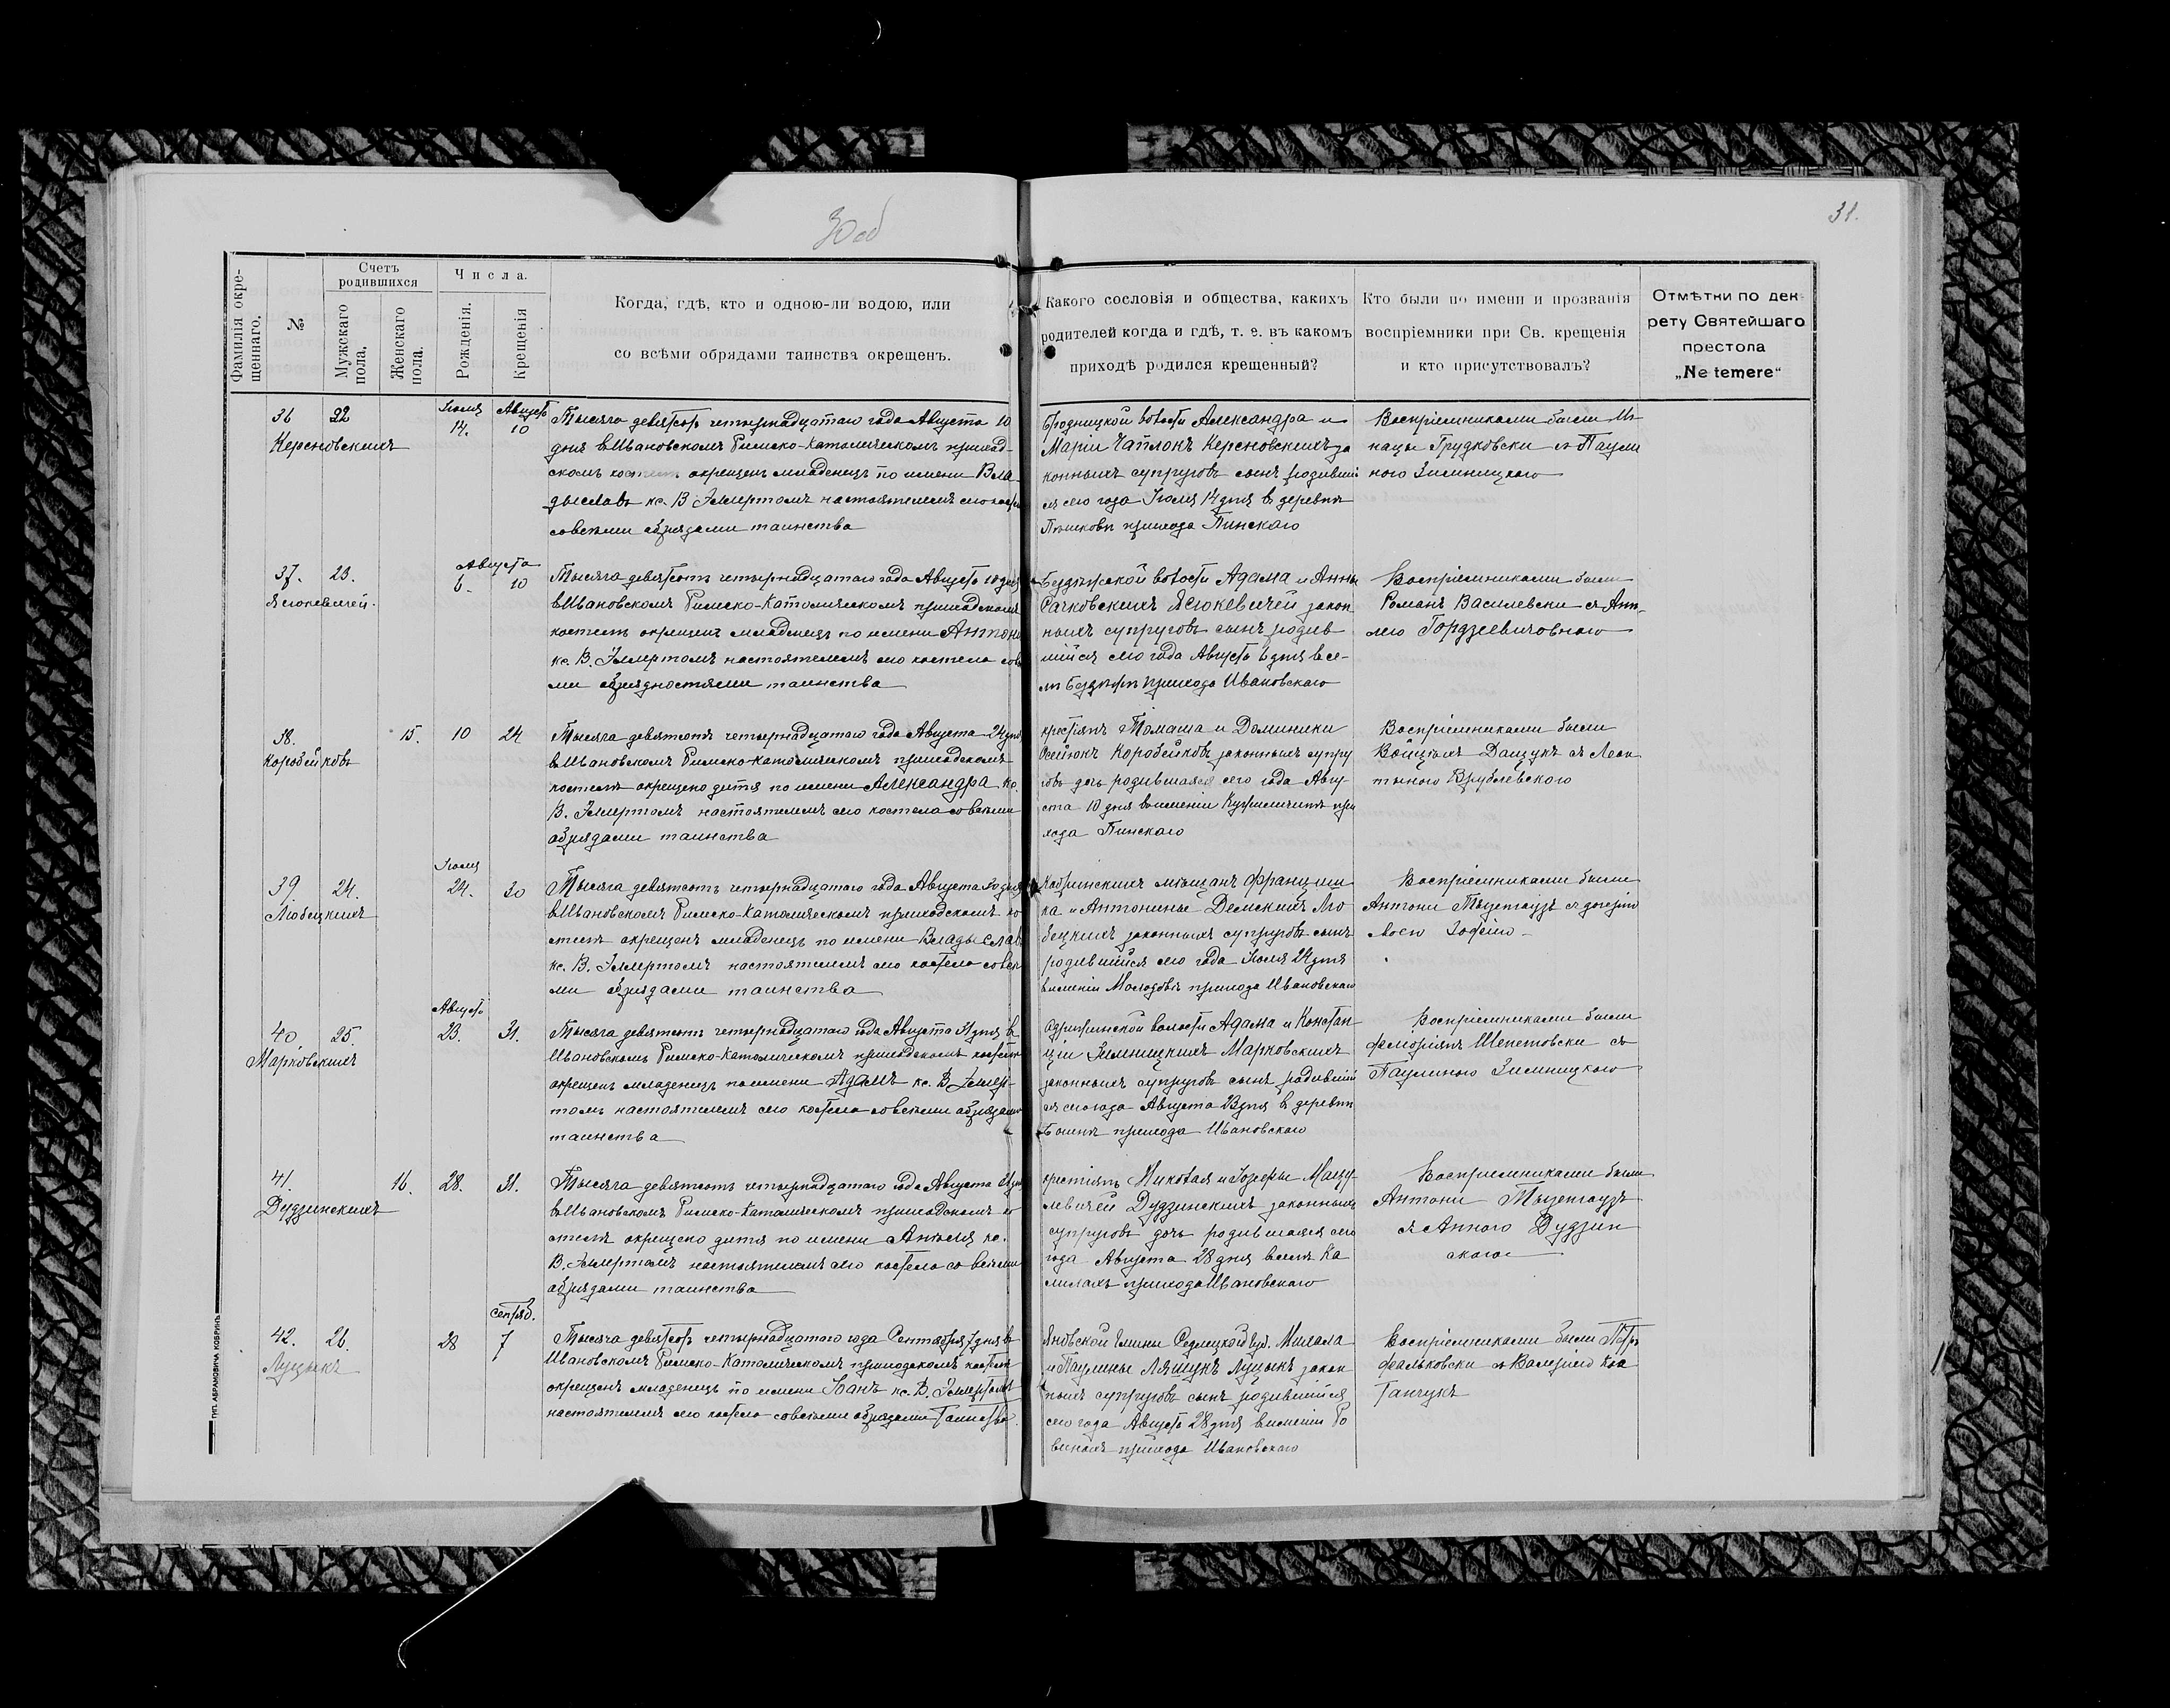 30об
31.
Фамилія окре-
щеннаго.
№
Счетъ
родившихся
Мужскаго
пола.
Женскаго
пола.
Числа.
Рожденія.
Крещенія
Когда, гдѣ, кто и одною-ли водою, или
со всѣми обрядами таинства окрещенъ.
Какого сословія и общества, какихъ
родителей когда и гдѣ, т. е. въ какомъ
приходѣ родился крещенный?
Кто были по имени и прозванія
воспріемники при Св. крещенія
и кто присутствовалъ?
Отмѣтки по дек-
рету Святейшаго
престола
„Ne temere“
36
22
Іюля
14.
Августа
10
Керсновскихъ
Тысяча девятсотъ четырнадцатаго года Августа 10
дня въ Ивановскомъ Римско-Католическомъ приход-
скомъ костелѣ окрещенъ младенецъ по имени Вла
дыславъ кс. В. настоятелемъ сего
со всѣми обрядами таинства
волости Александра и
Маріи Чаплонъ Керсновскихъ за
конныхъ супруговъ сынъ родивший
ся сего года Іюля 14 дня въ деревнѣ
прихода Пинскаго
Воспріемниками были Иг-
нацы Грудковски съ Паули
ною Зилиницкою
37.
23.
Августа
6.
10
Ясюкевичей.
Тысяча девятсотъ четырнадцатаго года Августа 10 дня
въ Ивановскомъ Римско-Католическомъ приходскомъ
костелѣ окрещенъ младенецъ по имени Антони
кс. В. настоятелемъ сего костела совсѣ
ми обрядностями таинства
волости Адама и Анны
Сачковскихъ Ясюкевичей закон
ныхъ супруговъ сынъ родив
шійся сего года Августа 6 дня въ се-
лѣ прихода Ивановскаго
Воспріемниками были
Романъ Василевски съ Анн-
лею Гордзеевичовною
38.
15.
10
24
Коробейковъ
Тысяча девятсотъ четырнадцатаго года Августа 24 дня
въ Ивановскомъ Римско-Католическомъ приходскомъ
костелѣ окрещено дитя по имени Александра кс.
В. настоятелемъ сего костела со всѣми
обрядами таинства
крестіянъ Томаша и Доминики
Коробейковъ законныхъ супру
говъ дочь родившаяся сего года Авгу
ста 10 дня въ имѣніи при
хода Пинскаго
Воспріемниками были
Войцѣхъ Дащукъ съ Леон
тыною Врублевскою
39
24.
Іюля
24.
30
Любецкихъ
Тысяча девятсотъ четырнадцатаго года Августа 30 дня
въ Ивановскомъ Римско-Католическомъ приходскомъ ко
стелѣ окрещенъ младенецъ по имени Владыславъ
кс. В. настоятелемъ сего костела совсѣ
ми обрядами таинства
Кобринскихъ мѣщанъ Франциш
ка и Антонины Демскихъ Лю
бецкихъ законныхъ супруговъ сынъ
родившийся сего года Іюля 24 дня
въ имѣніи прихода Ивановскаго
Воспріемниками были
Антони
Зофіею
40
25.
Августа
23.
31.
Марковскихъ
Тысяча девятсотъ четырнадцатаго года Августа 31 дня въ
Ивановскомъ Римско-Католическомъ приходскомъ костелѣ
окрещенъ младенецъ по имени Адамъ кс. В.
настоятелемъ сего костела совсѣми обрядами
таинства
волости Адама и Констан
ціи Зилиницкихъ Марковскихъ
законныхъ супруговъ сынъ родивший
ся сего года Августа 23 дня въ деревнѣ
прихода Ивановскаго
Воспріемниками были
Флоріянъ Шепетовски съ
Паулиною Зилиницкою
41.
16.
28.
31.
Дудзинскихъ
Тысяча девятсотъ четырнадцатаго года Августа 31 дня
въ Ивановскомъ Римско-Католическомъ приходскомъ ко
стелѣ окрещено дитя по имени Анеля кс.
В. настоятелемъ сего костела со всѣми
обрядами таинства
крестіянъ Николая и Іозефы
Дудзинскихъ законныхъ
супруговъ дочь родившаяся сего
года Августа 28 дня въ селѣ Ка
прихода Ивановскаго
Воспріемниками были
Антони
съ Анною Дудзин
скою
42.
26.
28
сентяб.
7
Луцыкъ
Тысяча девятсотъ четырнадцатаго года Сентября 7 дня въ
Ивановскомъ Римско-Католическомъ приходскомъ костелѣ
окрещенъ младенецъ по имени Янъ кс. В.
настоятелемъ сего костела совсѣми обрядами таинства.
Яновской Гмины Седлецкой губ. Михала
и Паулины Луцыкъ закон
ныхъ супруговъ сынъ родившийся
сего года Августа 28 дня въ имѣніи
прихода Ивановскаго
Воспріемниками были Петръ
Фальковски съ Валеріею
ТИП. АБРАМОВИЧА КОБРИНЪ